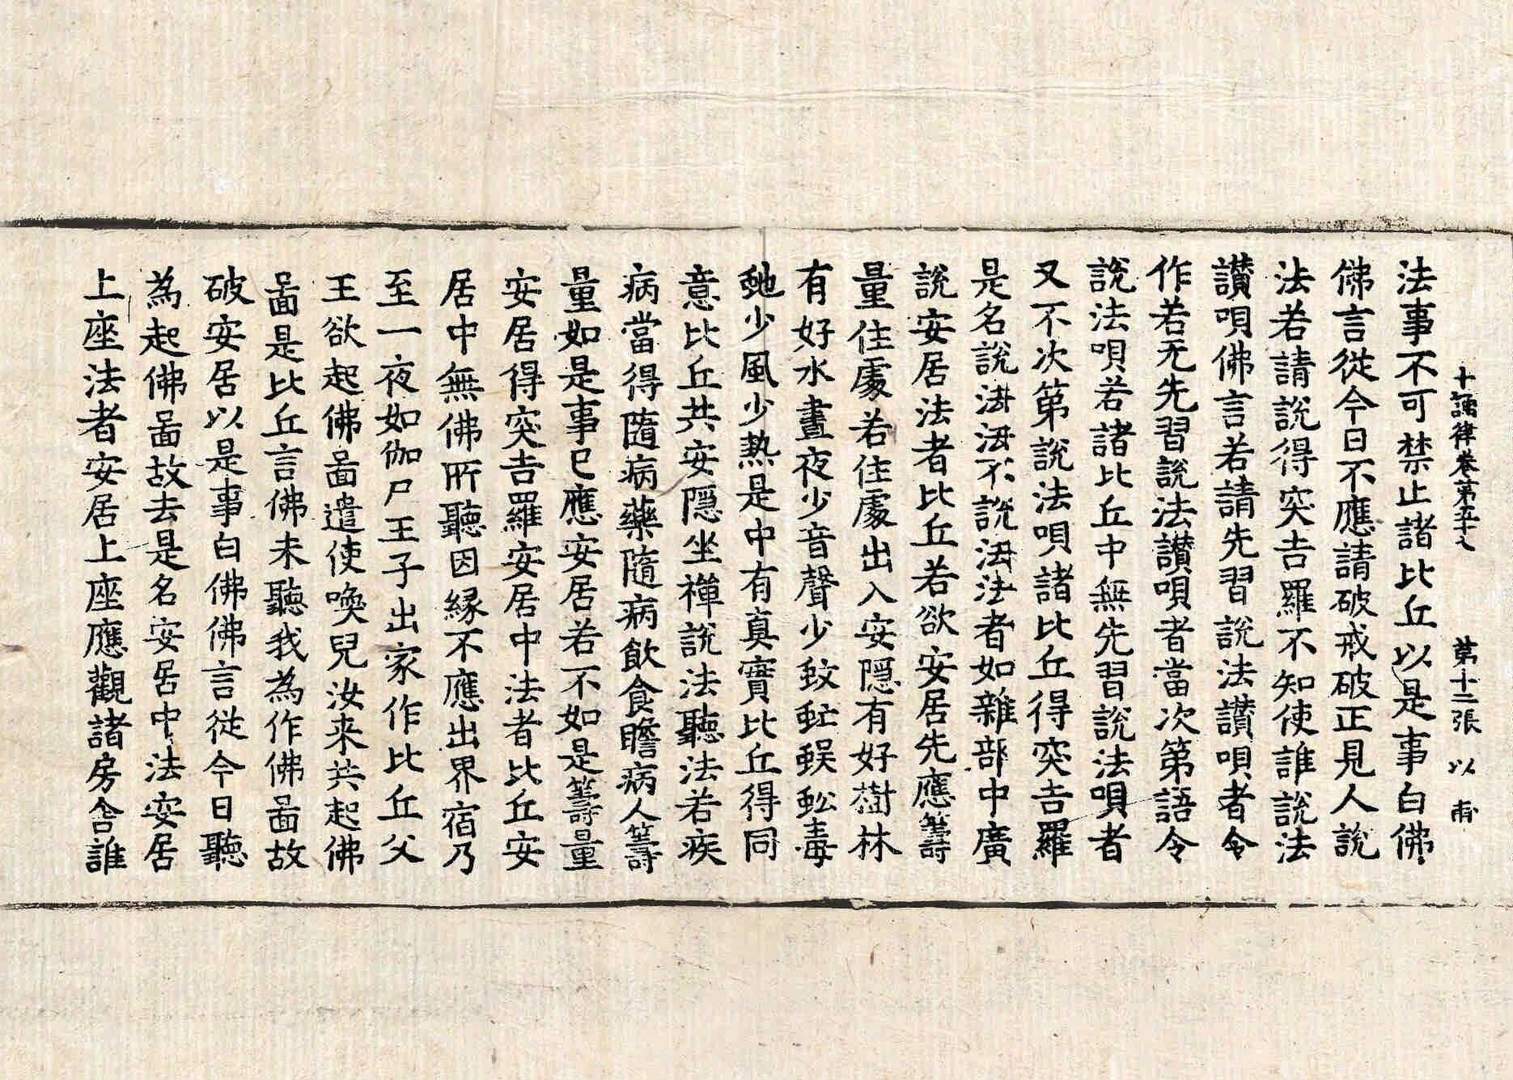 十誦律卷第五十七　第十二張　以　甫
法事不可禁止諸比丘以是事白佛
佛言從今日不應請破戒破正見人說
法若請說得突吉羅不知使誰說法
讃唄佛言若請先習說法讃唄者令
作若无先習說法讃唄者當次第語令
說法唄若諸比丘中無先習說法唄者
又不次第說法唄諸比丘得突吉羅
是名說法法不說法法者如雜部中廣
說安居法者比丘若欲安居先應籌
量住處若住處出入安隱有好樹林
有好水晝夜少音聲少蚊虻蜈蚣毒
虵少風少熱是中有真實比丘得同
意比丘共安隱坐禪說法聽法若疾
病當得隨病藥隨病飲食瞻病人籌
量如是事已應安居若不如是籌量
安居得突吉羅安居中法者比丘安
居中無佛所聽因緣不應出界宿乃
至一夜如伽尸王子出家作比丘父
王欲起佛啚遣使喚兒汝来共起佛
啚是比丘言佛未聽我為作佛啚故
破安居以是事白佛佛言從今日聽
為起佛啚故去是名安居中法安居
上座法者安居上座應觀諸房舍誰